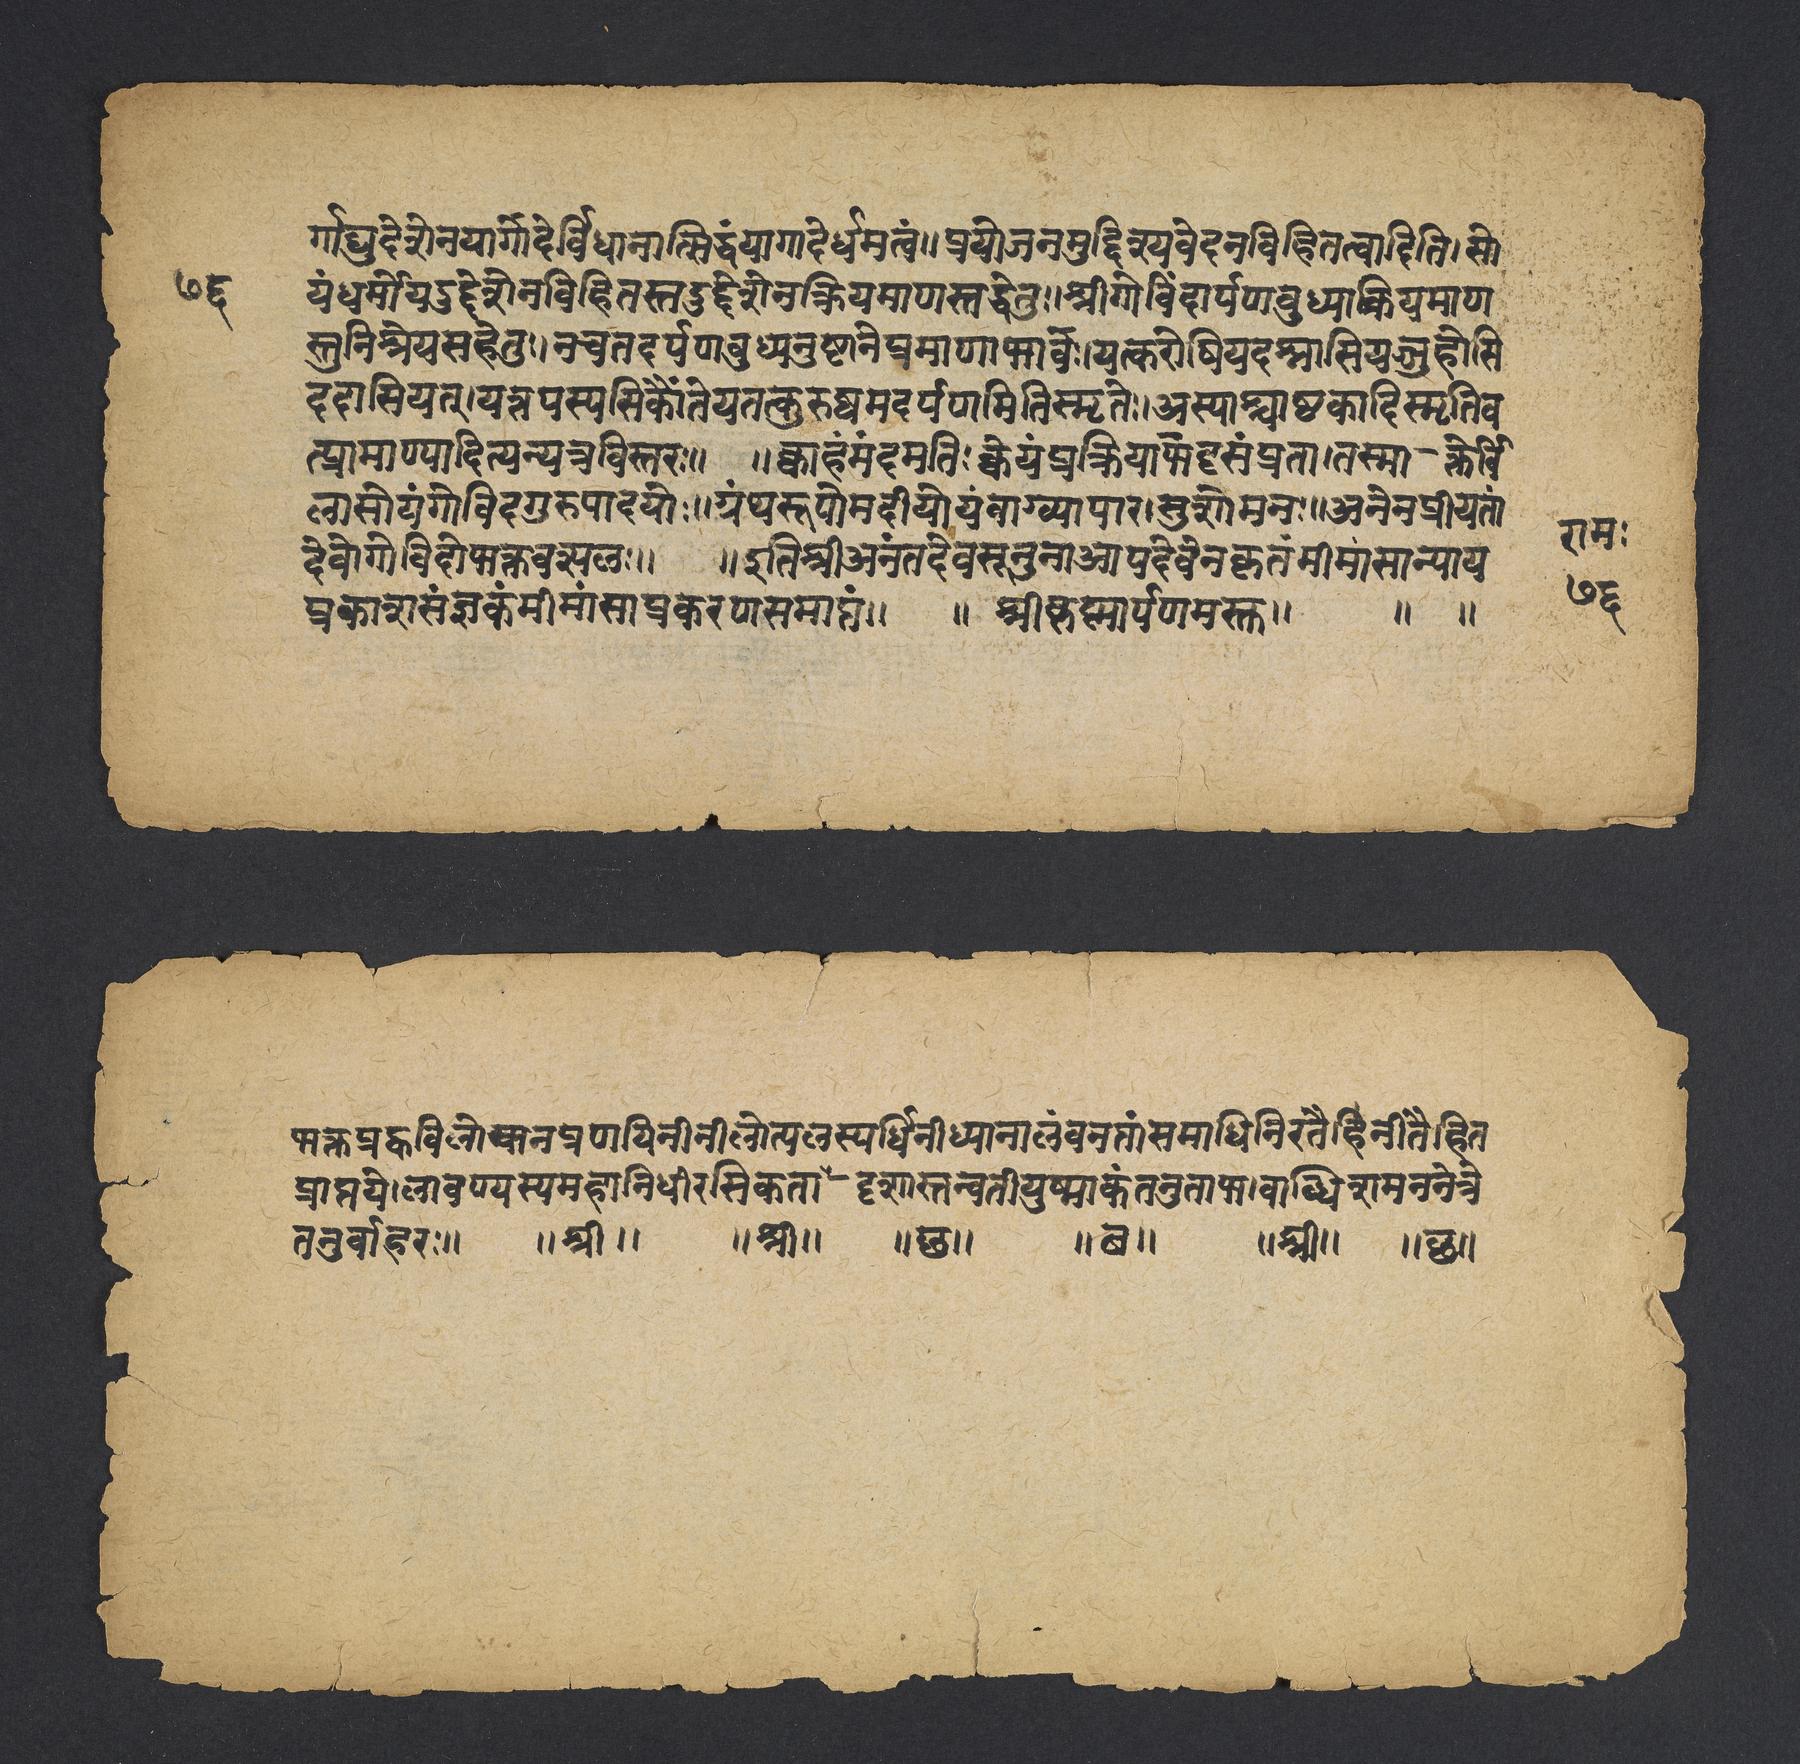 र्गाद्युदेशेनयागादेर्विधानात्सिद्धंयागादेर्धमत्वं॥प्रयोजनमुद्दिश्यवेदेनविहितत्वादिति।सो
७६
यंधर्मोयदुद्देशेनविहितस्तदुद्देशेनक्रियमाणस्तद्धेतुः॥श्रीगोविंदार्पणबुध्याक्रियमाण
स्तुनिश्रेयसहेतुः।नचतदर्पणबुध्यनुष्टानेप्रमाणाभावः।यत्करोषियदश्नासियज्जुहोसि
ददासियत्।यत्तपस्यसिकौंतेयतत्कुरुष्वमदर्पणमितिस्मृतेः।अस्याश्चाष्टकादिस्मृतिव
त्प्रामाण्यादित्यन्यत्रविस्तरः॥ ॥क्वाहंमंदमतिः क्वेयंप्रक्रियाभट्टसंप्रता।तस्मा-क्तेर्वि
लासोयंगोविदगुरुपादयोः॥ग्रंथरूपोमदीयोयंवाग्व्यापार।सुशोमनः॥अनेनप्रीयतां
देवोगोविदोभक्तवत्सलः॥ ॥इतिश्रीअनंतदेवसूनुनाआपदेवेनकृतंमीमांसान्याय
रामः
प्रकाशसंज्ञकंमीमांसाप्रकरणसमाप्तं॥ ॥ श्रीकृष्णार्पणमस्तु॥ ॥ ॥
७६
भक्तप्रह्वविलोकनप्रणयिनीनीलोत्पलस्पर्धिनीध्यानालंबनतांसमाधिनिरतैर्हिनीतैहित
प्राप्तये।लावण्यस्यमहानिधीरसिकता-दृशास्तन्वतीयुष्माकंतनुताभ।वाब्धिशमननेत्रे
तनुर्वाहरः॥ ॥श्री॥ ॥श्री॥ ॥छ॥ ॥ब॥ ॥श्री॥ ॥छ॥